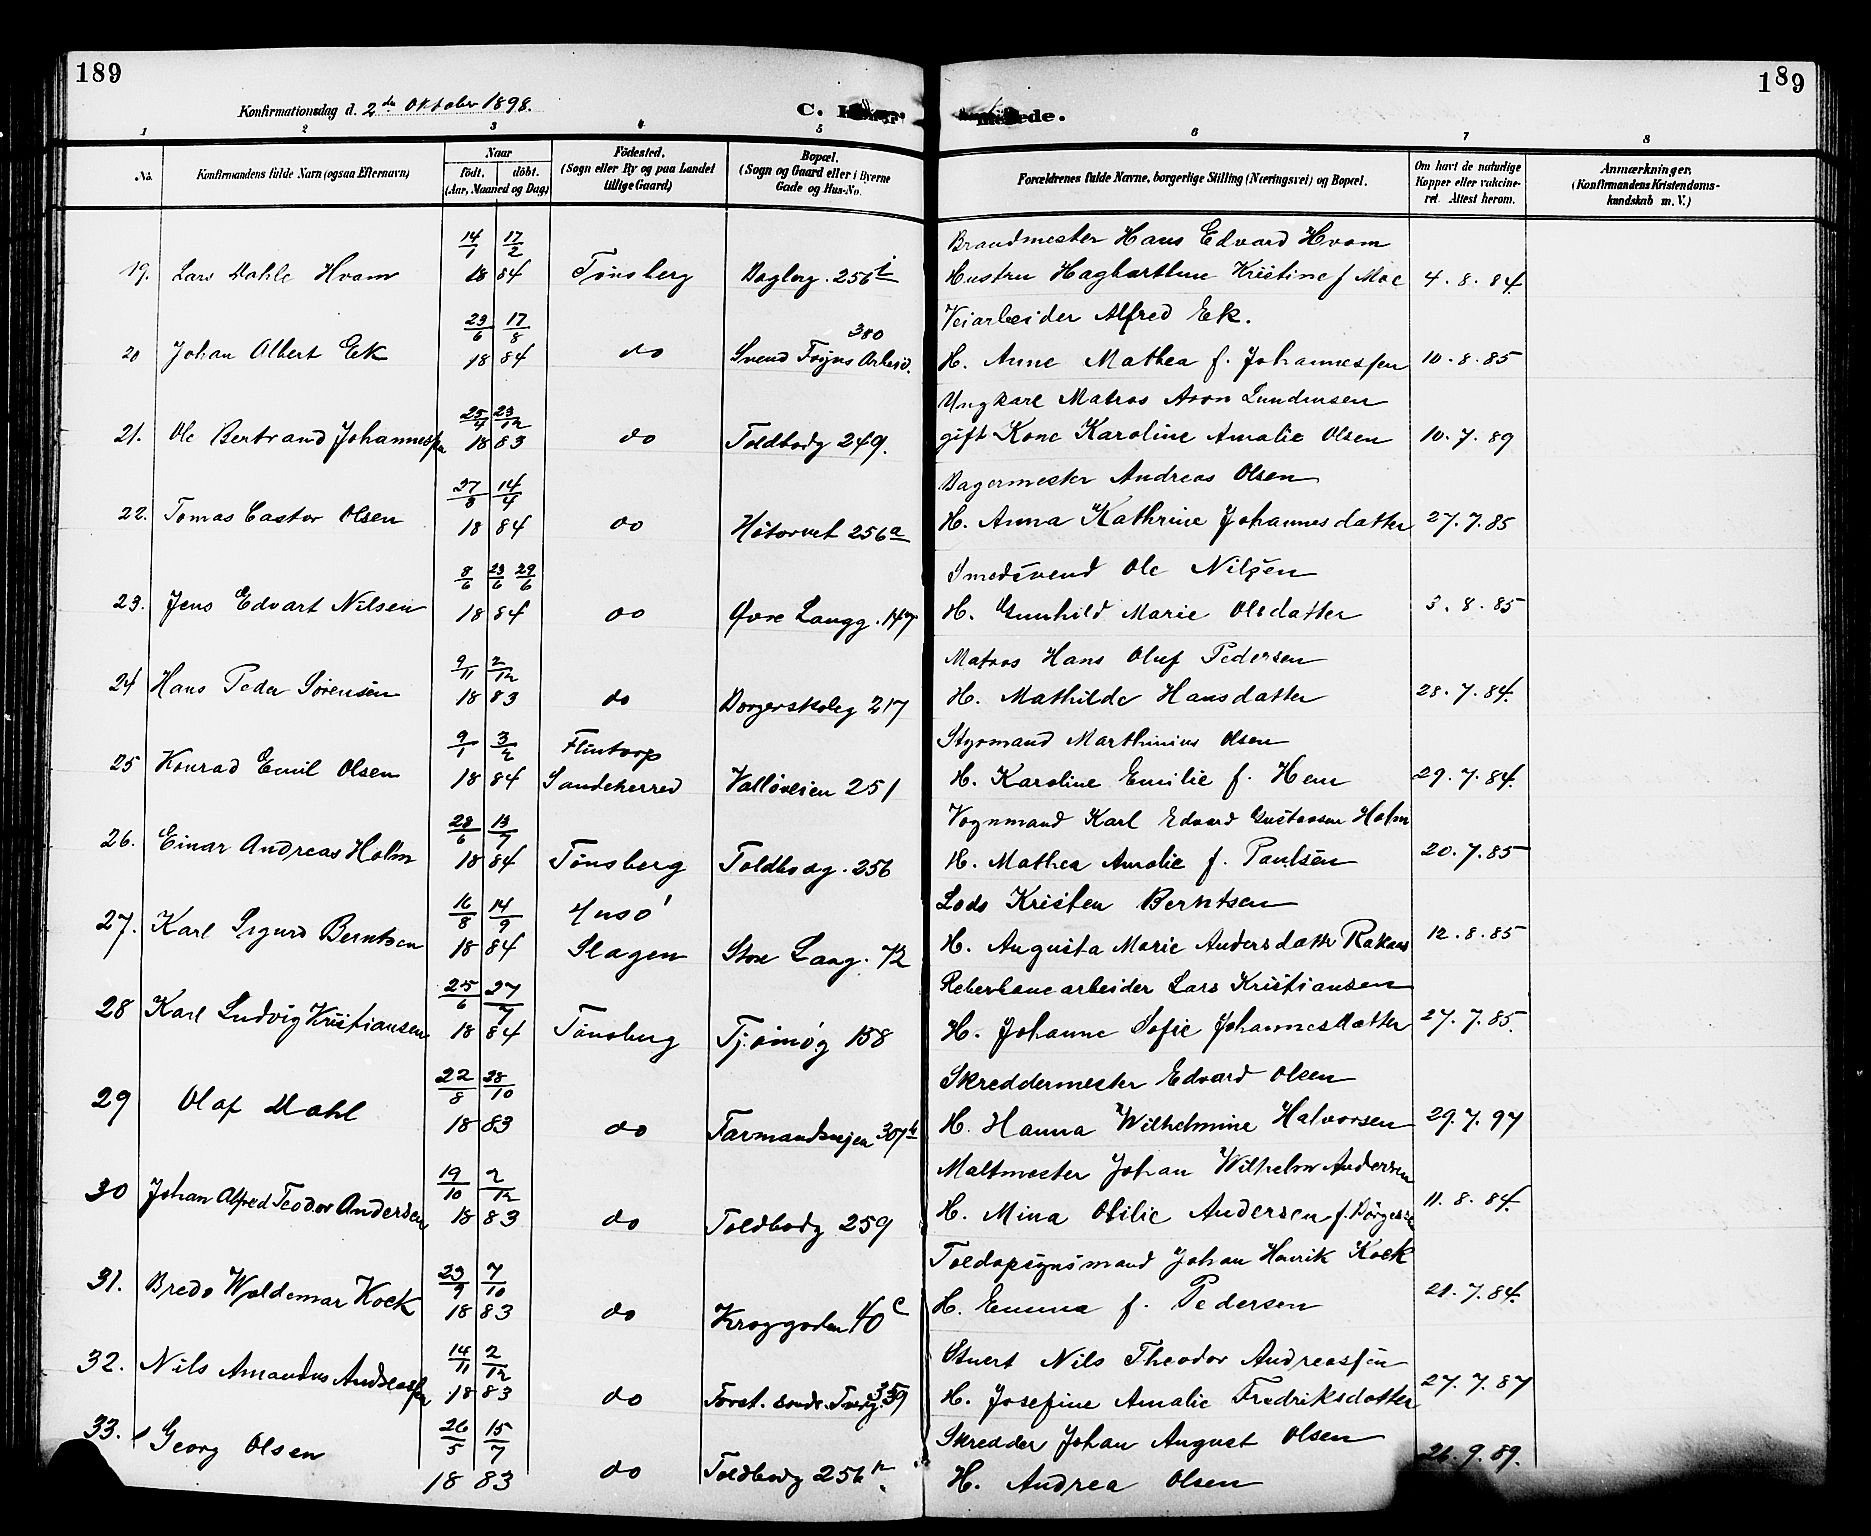 189
189
Konfirmationsdag d. 2den Oktober 1898.
C.
de.
1 2 3 4 5 6 7 8
No.
Konfirmandens fulde Navn (ogsaa Efternavn)
Naar
födt. döbt.
(Aar, Maaned og Dag)
Födested.
(Sogn eller By og paa Landet
tillige Gaard)
Bopæl.
(Sogn og Gaard eller i Byerne
Gade og Hus-No.
Forældrenes fulde Navne, borgerlige Stilling (Næringsvei) og Bopæl.
Om havt de naturlige
Kopper eller vakcine-
ret. Attest herom.
Anmærkninger.
(Konfirmandens Kristendoms-
kundskab m. V.)
14/1 17/2 Brandmester Hans Edvard Hvam
19. Lars Dahle Hvam 18 84 Tønsberg 256 i Hustru Hagbarthine Kristine f Moe 4.8.84.
23/6 17/8 380 Veiarbeider Alfred Ek.
20 Johan Albert Ek 18 84 do Svend Foyns Arbeid. H. Anne Mathea f. Johannessen 10.8.85
25/4 23/12 Ungkarl Matros Aron Lundensen
21. Ole Bertrand Johannessen 18 83 do Toldbodg 249. gift Kone Karoline Amalie Olsen 10.7.89
27/3 14/4 Bagermester Andreas Olsen
22. Tomas Castor Olsen 18 84 do Høtorvet 256 a H. Anna Kathrine Johannesdatter 27.7.85
8/6 23/6 29/6 Smedsvend Ole Nilsen
23. Jens Edvart Nilsen 18 84 do Øvre Langg. 147 H. Gunhild Marie Olsdatter 3.8.85
9/11 2/12 Matros Hans Oluf Pedersen
24 Hans Peder Sørensen 18 83 do Borgerskoleg 217 H. Mathilde Hansdatter 28.7.84.
9/1 3/2 Flintorp Styrmand Marthinius Olsen
25 Konrad Emil Olsen 18 84 Sandeherred Valløveien 251 H. Karoline Emilie f. Hem 29.7.84.
28/6 13/7 Vognmand Karl Edvard Gustavsen Holm
26. Einar Andreas Holm 18 84 Tønsberg Toldbodg. 256 H. Mathea Amalie f. Paulsen 20.7.85
16/8 14/9 Husø Lods Kristen Berntsen
27. Karl Sigurd Berntsen 18 84 Slagen Store Lang. 72 H. Augusta Marie Andersdatter 12.8.85
25/6 27/7 Reberbanearbeider Lars Kristiansen
28 Karl Ludvig Kristiansen 18 84 Tønsberg Tjømøg 158 H. Johanne Sofie Johannesdatter 27.7.85.
22/8 28/10 Skreddermester Edvard Olsen
29 Olaf Dahl 18 83 do Farmandsvejen 307 b H. Hanna Wilhelmine Halvorsen 29.7.97
19/10 2/12 Maltmester Johan Wilhelm Andersen
30 Johan Alfred Teodor Andersen 18 83 do Toldbodg 259 H. Mina Otilie Andersen f. 11.8.84.
23/9 7/10 Toldopsynsmand Johan Henrik Kock
31. Bredo Woldemar Kock 18 83 do Kroggaden 40 c H. Emma f. Pedersen 21.7.84.
14/11 2/12 Stuert Nils Theodor Andreassen
32. Nils Amandus Andreassen 18 83 do H. Josefine Amalie Fredriksdatter 27.7.87
26/5 15/7 Skredder Johan August Olsen
33. Georg Olsen 18 83 do Toldbodg 256 H. Andrea Olsen 26.9.89.